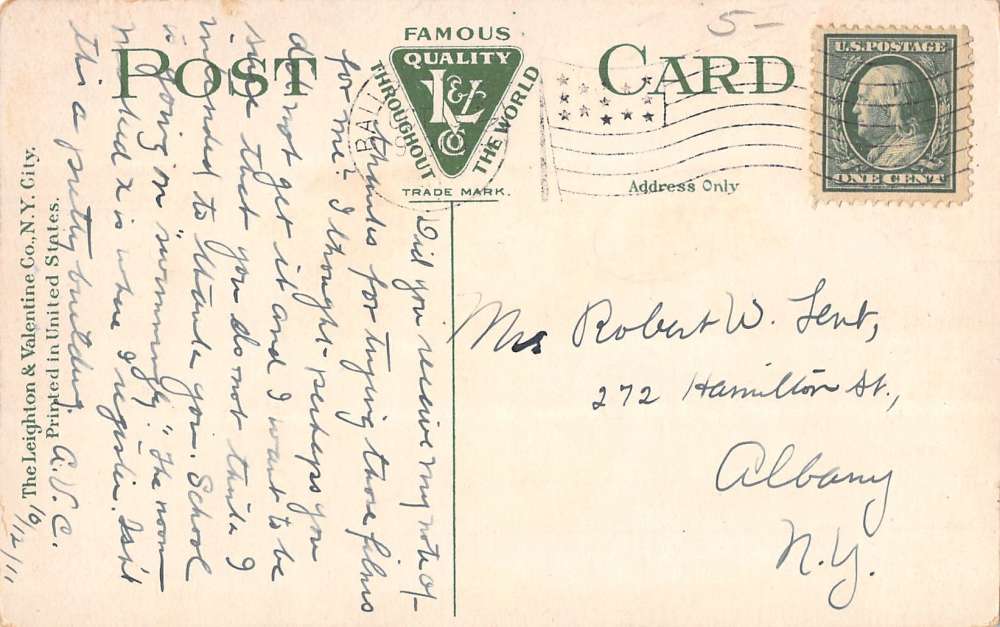 5-
FAMOUS
POST CARD
QUALITY
L&V
CO
THROUGHOUT THE WORLD
TRADE MARK.
U.S. POSTAGE
ONE CENT
Address Only
Did you receive my note of
thanks for trying those films
for me? I thought - perhaps you
did not get it and I want to be
sure that you do not think I
intended to thank you. School
is going on "swimmingly." The room
marked x is where I register. Isn't
this a pretty building. A.V.C.
10/12/11
Mrs Robert W. Lent,
272 Hamilton St.,
Albany
N.Y.
The Leighton & Valentine Co., N.Y. City.
Printed in United States.